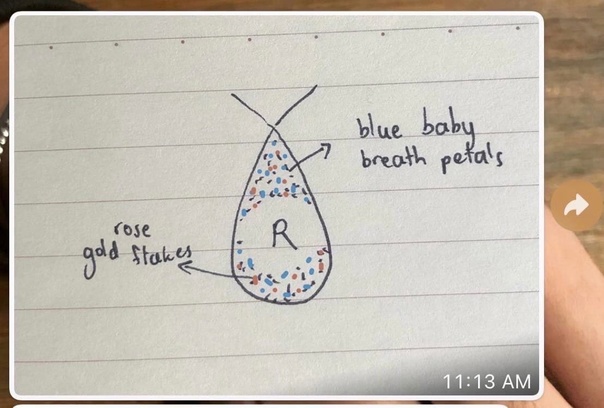 blue baby
breath petals
R
rose
gold flakes
11:13 AM